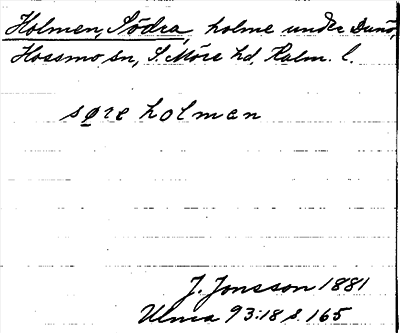 Holmen, Södra holme under Dunö,
Hossmo sn, S. Möre hd, Kalm. l.
søre holman
J. Jonsson 1881
Ulma 93:18 s. 165